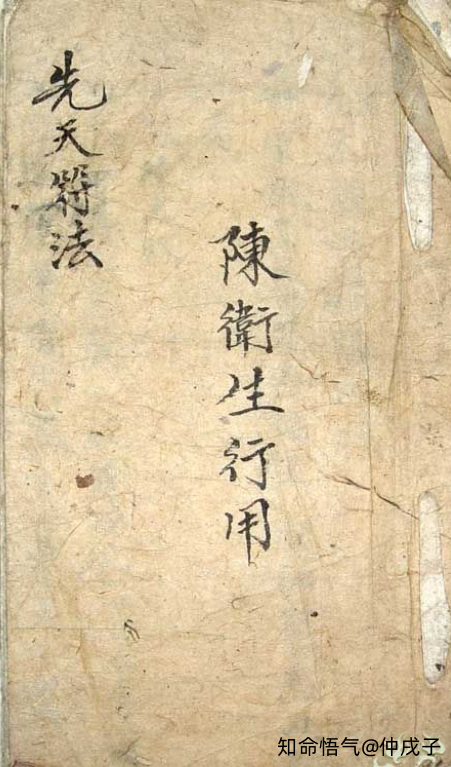 先天符法
陳衛生行用
知命悟气@仲戌子